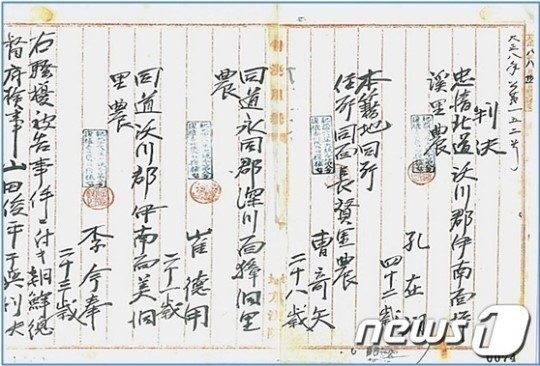 大正八年公第一五二号
判決
忠清北道沃川郡伊南面
溪里農
孔在
四十二歳
本籍地同所
住所同面長賛里農
曹奇矢
二十八歳
同道永同郡深川面獐洞里
農
崔德用
二十一歳
同道沃川郡伊南面美洞
里農
李今奉
二十三歳
右騷擾被告事件ニ付キ朝鮮總
督府檢事山田俊平干與判決
news1
0074